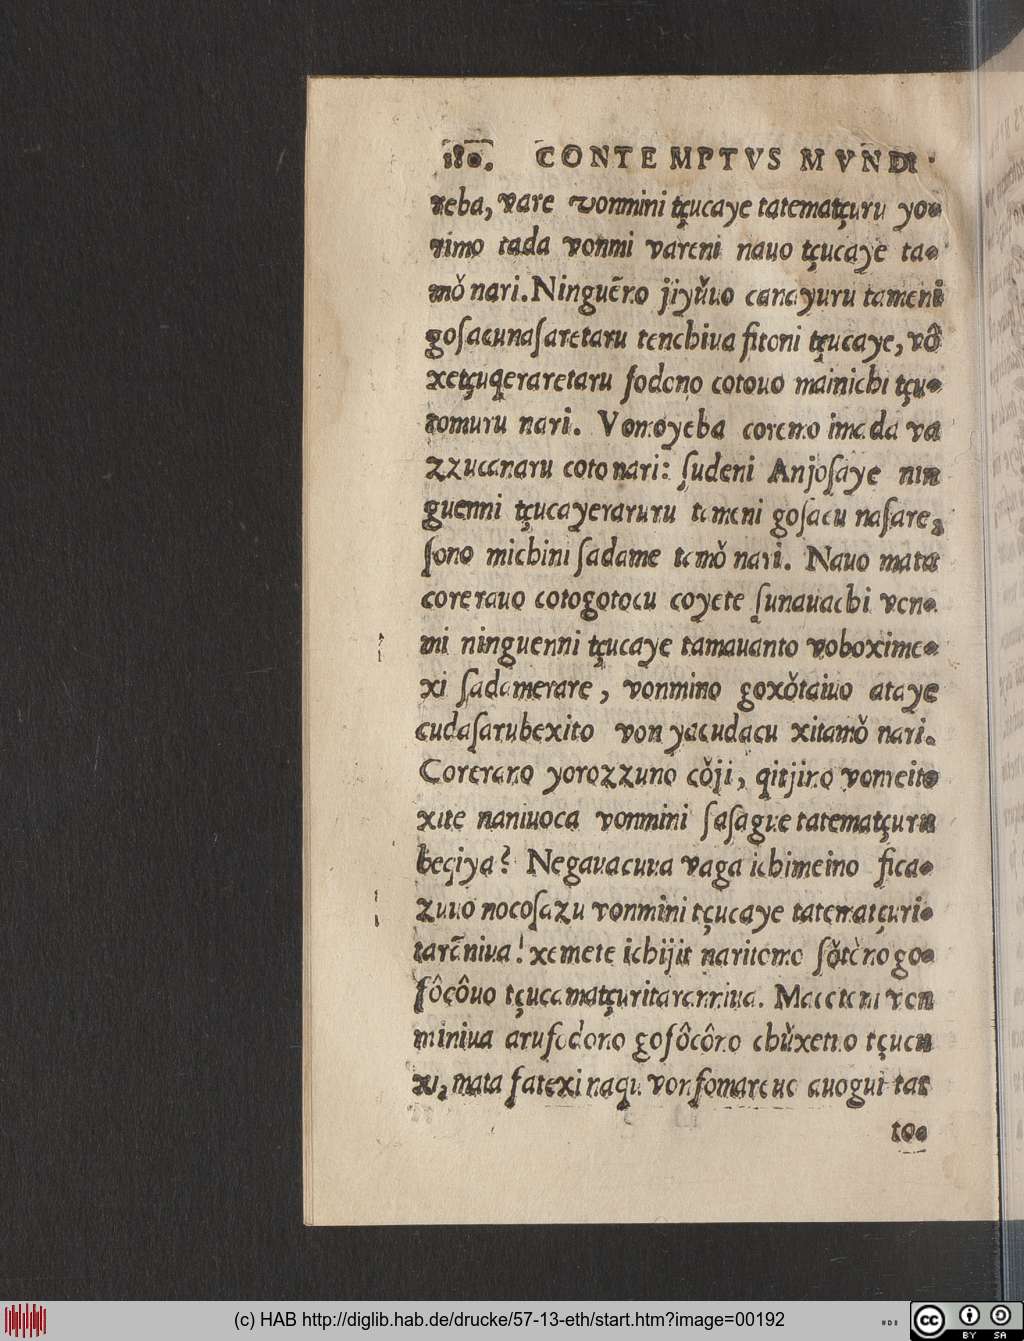 180. CONTEMPTVS MVNDI.
reba, vare vonmini tçucaye tatematçuru yo-
rimo tada vonmi vareni nauo tçucaye ta-
mǒ nari. Ninguẽno jiyǔuo canayuru tameni
gosacunasaretaru tenchiua fitoni tçucaye, vô
xetçuqeraretaru fodono cotouo mainichi tçu-
tomuru nari. Vomoyeba coremo imada va
zzuccanaru coto nari: sudeni Anjosaye nin
guenni tçucayeraruru tameni gosacu nasare,
sono michini sadame tamǒ nari. Nauo mata
corerauo cotogotocu coyete sunauachi von-
mi ninguenni tçucaye tamauanto voboxime-
xi sadamerare, vonmino goxǒtaiuo ataye
cudasarubexito von yacudacu xitamǒ nari.
Corerano yorozzuno cǒji, qitjino vomeito
xite naniuoca vonmini sasague tatematçuru
beqiya? Negauacuua vaga ichimeino fica-
zuuo nocosazu vonmini tçucaye tatematçuri-
tarẽniua! xemete ichijit naritomo sǒtǒno go-
fôcôuo tçucamatçuritarenniua. Macotoni von
miniua arufodono gofôcôno chǔxetto tçucu
xi, mata fatexi naqi vonfomareuo auogui tat
to-
(c) HAB http://diglib.hab.de/drucke/57-13-eth/start.htm?image=00192